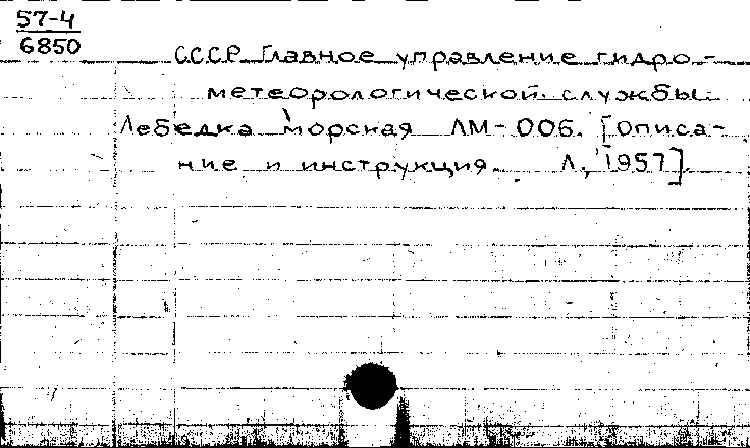 57-4
6850
СССР Главное управление гидро-
метеорологической службы.
Лебедка морская ЛМ-006. [Описа-
ние и инструкция. Л., 1957].